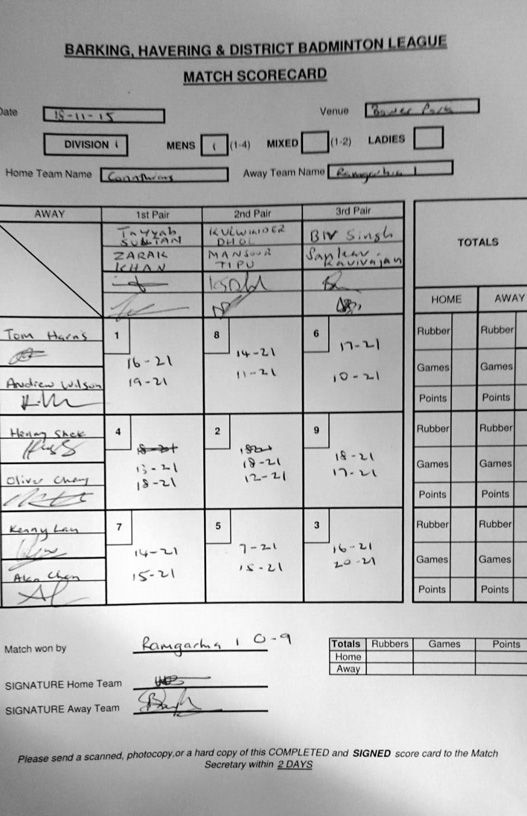 BARKING, HAVERING & DISTRICT BADMINTON LEAGUE
MATCH SCORECARD
Date 18-11-15 Venue
DIVISION 1 MENS 1 (1-4) MIXED (1-2) LADIES
Home Team Name Away Team Name Ramgarhia 1
AWAY 1st Pair 2nd Pair 3rd Pair TOTALS
Tayyab KULWINDER BIV Singh
SULTAN DHOL
ZARAK MANSOOR Sankav
KHAN TIPU Ravivajan
HOME AWAY
Tom Harris 1 8 6 Rubber Rubber
16-21 14-21 17-21
19-21 11-21 10-21 Games Games
Andrew Wilson Points Points
Henry Shek 4 2 9 Rubber Rubber
13-21 18-21 18-21 Games Games
Oliver Chang 18-21 12-21 17-21
Points Points
Kenny Lau 7 5 3 Rubber Rubber
14-21 7-21 16-21
15-21 15-21 20-21 Games Games
Alan Chan Points Points
Match won by Ramgarhia 1 0-9
Totals Rubbers Games Points
Home
Away
SIGNATURE Home Team
SIGNATURE Away Team
Please send a scanned, photocopy,or a hard copy of this COMPLETED and SIGNED score card to the Match
Secretary within 2 DAYS